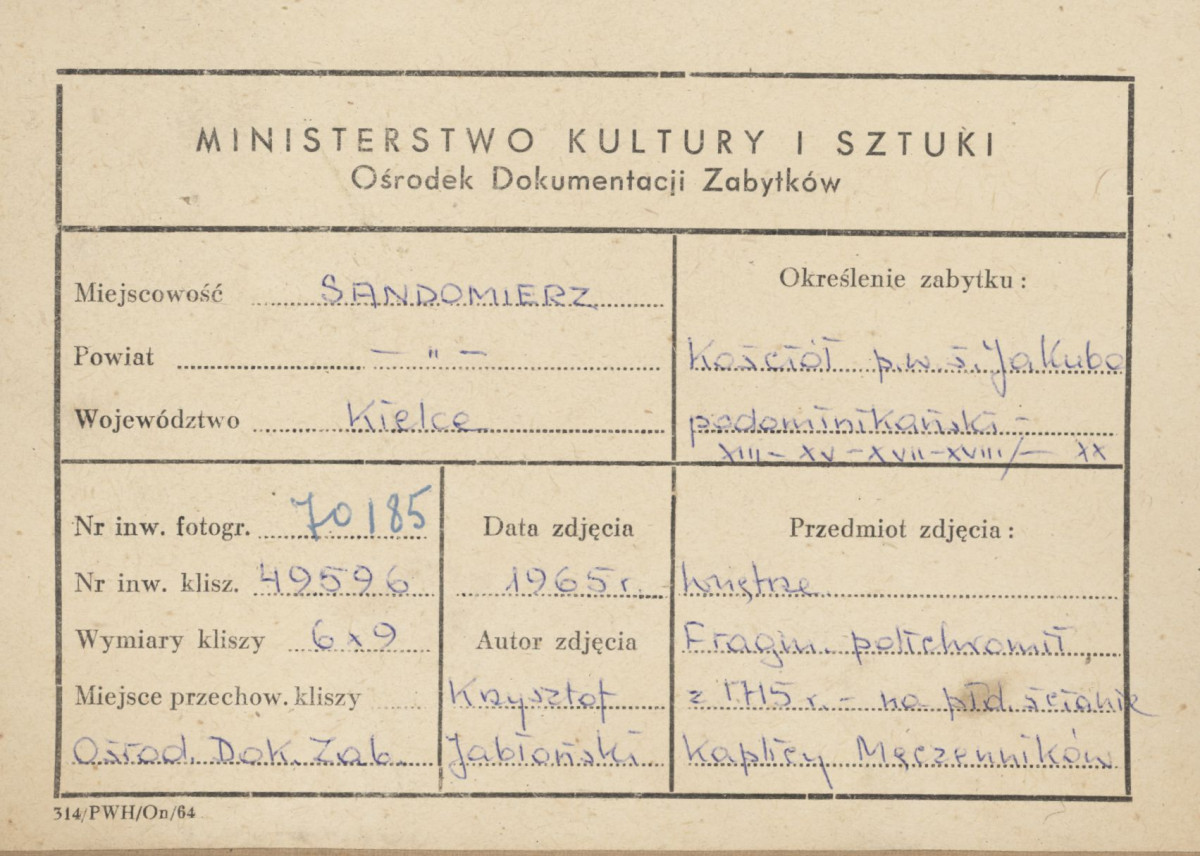 MINISTERSTWO KULTURY I SZTUKI
Ośrodek Dokumentacji Zabytków
Miejscowość SANDOMIERZ
Powiat — " —
Województwo Kielce
Określenie zabytku:
Kościół p.w. ś. Jakuba
podominikański -
XIII - XV - XVII - XVIII/ - XX
Nr inw. fotogr. 70185
Nr inw. klisz. 49596
Wymiary kliszy 6x9
Miejsce przechow. kliszy
Ośrod. Dok. Zab.
Data zdjęcia
1965 r.
Autor zdjęcia
Krzysztof
Jabłoński
Przedmiot zdjęcia:
Wnętrze
Fragm. polichromii,
z 1715 r. - na płd. ścianie
Kaplicy Męczenników
314/PWH/On/64